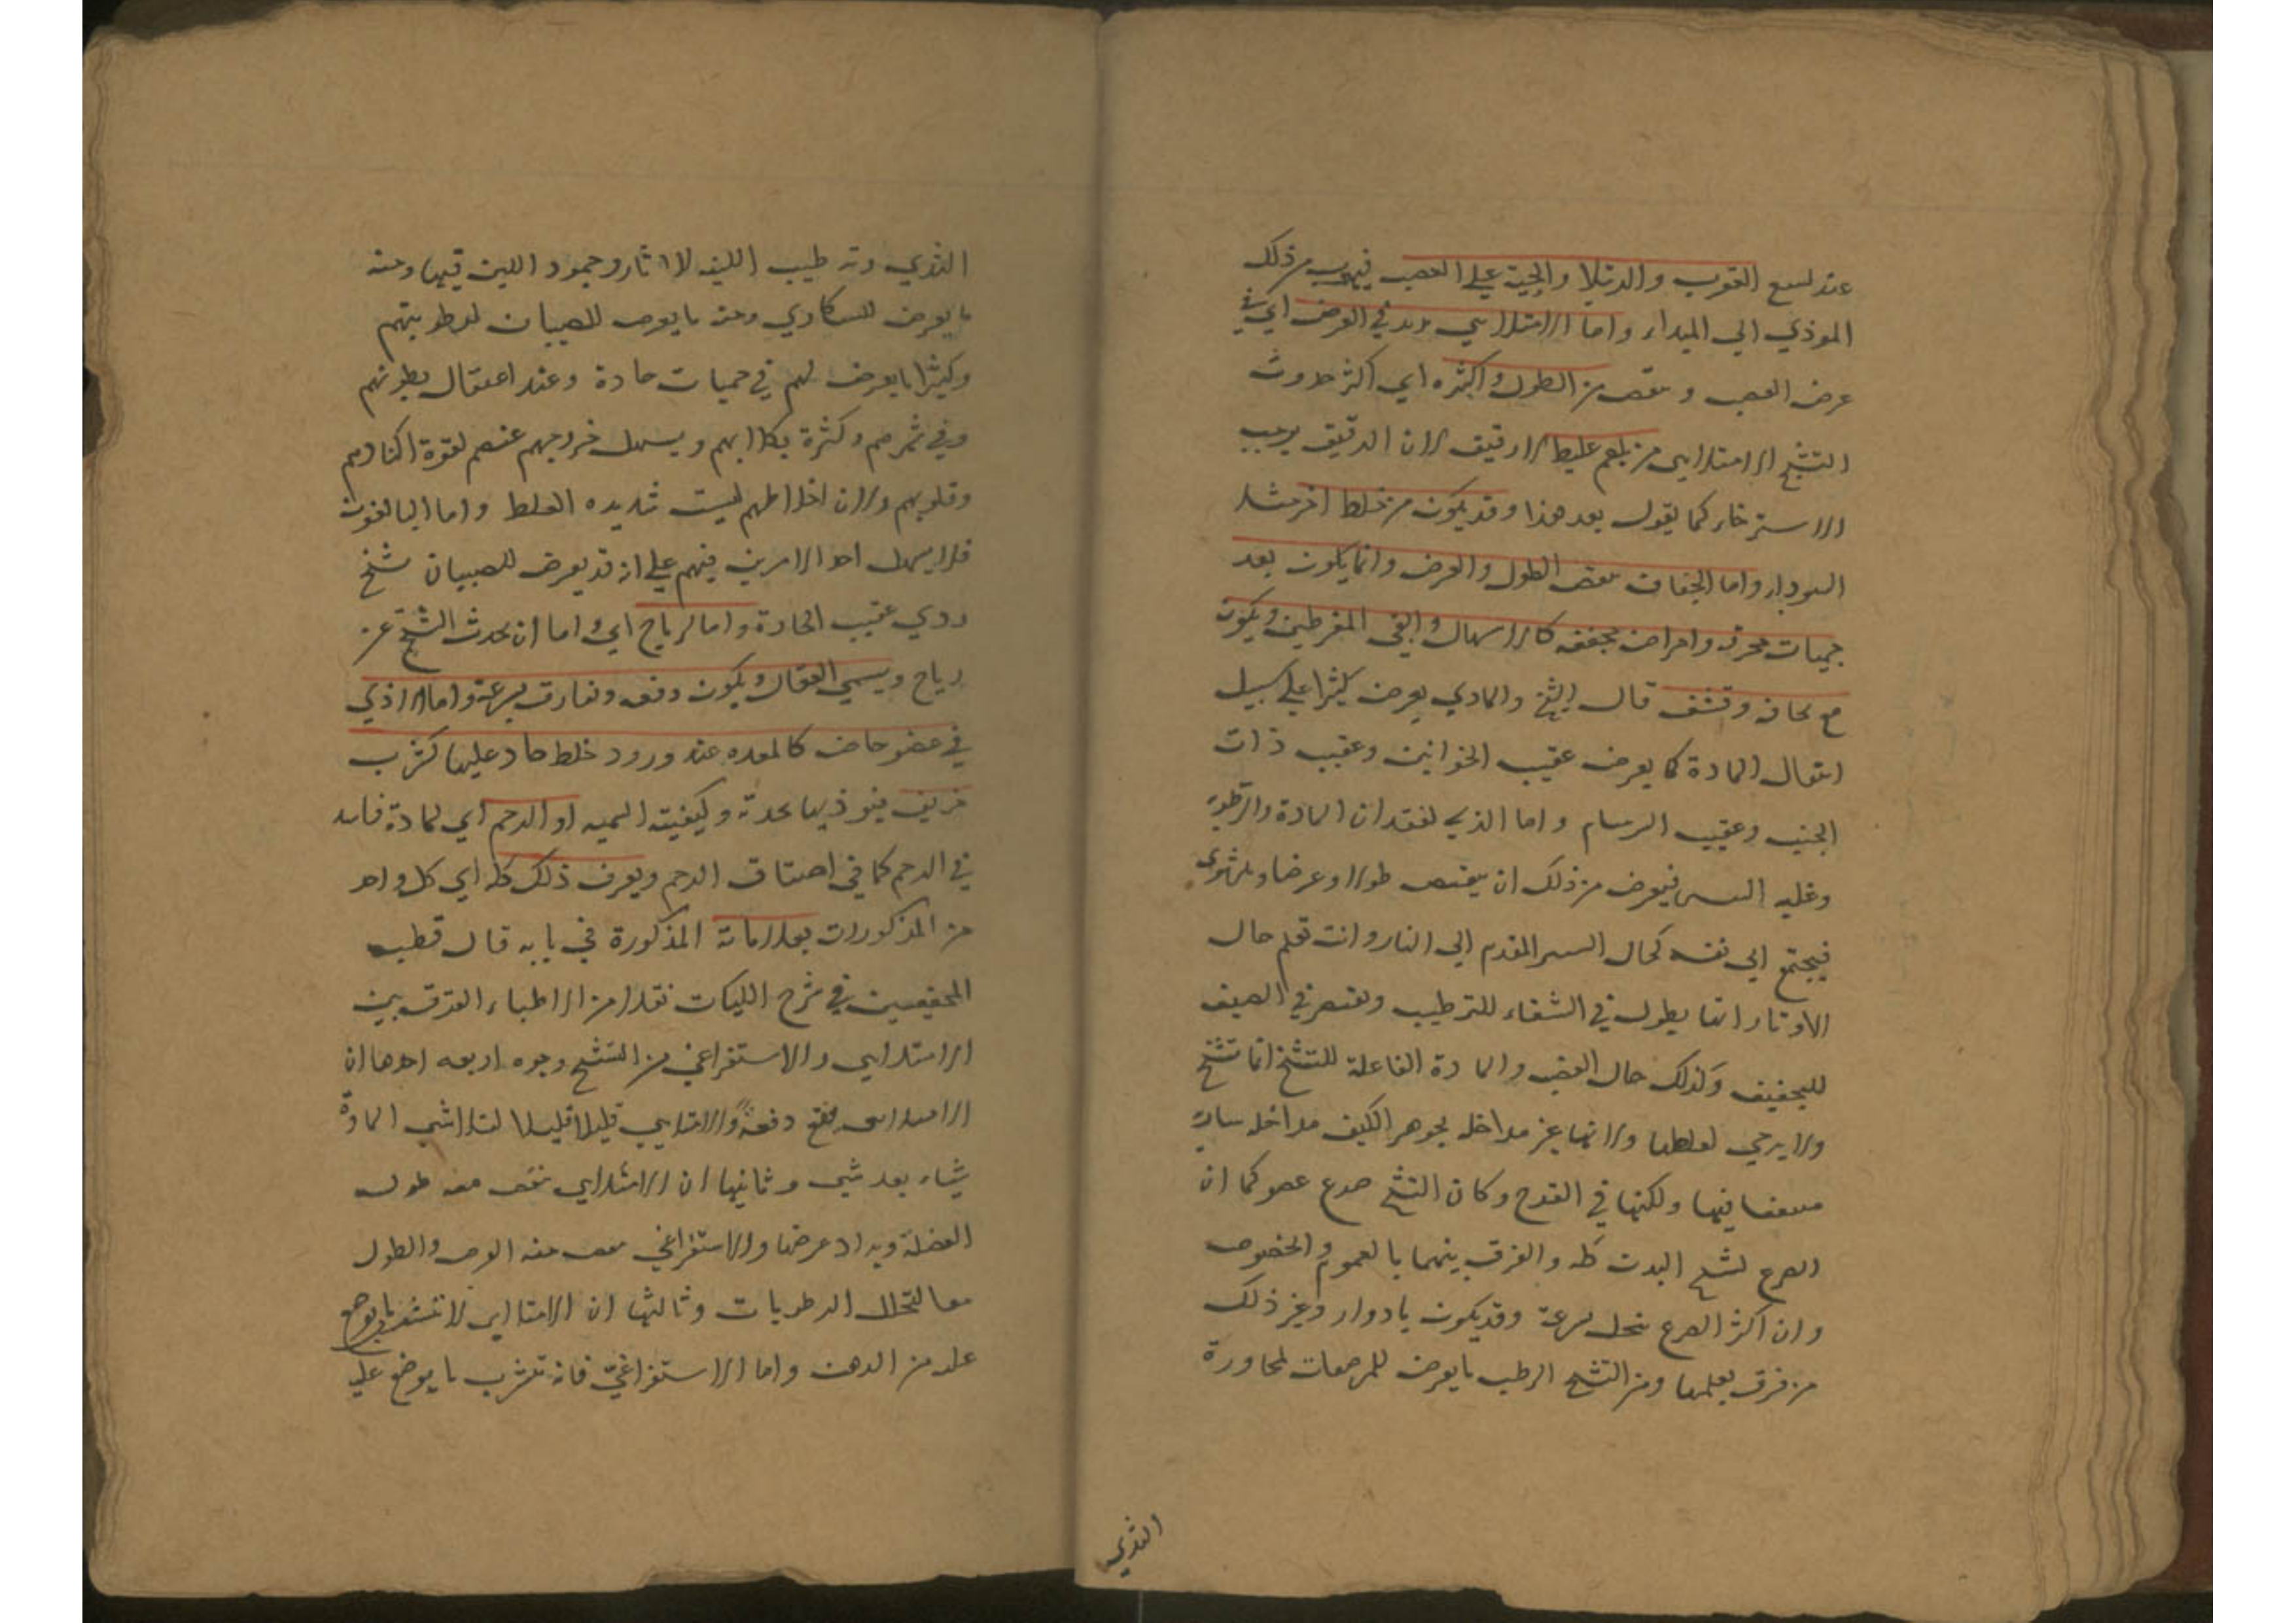 عند لسع العقرب والرتيلا والحية على العصب فيهرب من ذلك
الموذي الي المبداء واما الامتلايي يزيد في العرض اي في
عرض العصب و ينقص من الطول واكثره اي اكثر حدوث
التشنج الامتلايي من بلغم غليظ لا رقيق لان الرقيق يوجب
الاسترخاء كما يقول بعد هذا وقد يكون من خلط اخر مثل
السوداء واما الجفاف ينقص الطول والعرض وانما يكون بعد
حميات محرقة وامراض مجففه كالاسهال والقي المفرطين ويكون
مع نحافه وقشف قال الشيخ والمادي يعرض كثيرا على سبيل
انتقال المادة كما يعرض عقيب الخوانيق وعقيب ذات
الجنب وعقيب السرسام واما الذي لفقدان المادة والرطوبة
وغلبه اليبس فيعرض من ذلك ان ينقص طولا وعرضا
فيجتمع الي نفسه كحال السير المقدم الي النار وانت تعلم حال
الاوتار انها يطول في الشتاء للترطيب وتقصر في الصيف
للتجفيف وكذلك حال العصب والمادة الفاعلة للتشنج انما تشنج
ولا يرخي لغلظها ولانها غير مداخله لجوهر الليف مداخله سارية
فيها ولكنها في الفرج وكان التشنج صرع عضو كما ان
الصرع تشنج البدن كله والفرق بينهما بالعموم والخصوص
وان اكثر الصرع ينحل بسرعة وقد يكون بادوار وغير ذلك
من فرق يعلمها ومن التشنج الرطب ما يعرض للمرضعات لمجاورة
الثدي
الثدي وترطيب اللبن للاوتار وجمود اللبن فيها ومنه
ما يعرض للسكاري ومنه ما يعرض للصبيان لرطوبتهم
وكثيرا ما يعرض لهم في حميات حادة وعند اعتقال بطونهم
وفي سهرهم وكثرة بكايهم ويسهل خروجهم عنهم لقوة اكبادهم
وقلوبهم ولان اخلاطهم ليست شديده الغلظ واما البالغون
فلا يسهل احد الامرين فيهم على انه قد يعرض للصبيان تشنج
ردي عقيب الحادة واما لرياح اي واما ان يحدث التشنج عن
رياح ويسمي العقال ويكون دفعه وتفارق بسرعة واما لاذي
في عضو خاص كالمعده عند ورود خلط حاد عليها كشرب
خربق فيوذيها بحدته وكيفيته السميه او الرحم اي لمادة فاسده
في الرحم كما في اختناق الرحم ويعرف ذلك كله اي كل واحد
من المذكورات بعلاماته المذكورة في بابه قال قطب
المحققين في شرح الكليات نقلا من الاطباء الفرق بين
الامتلايي والاستفراغي من التشنج وجوه اربعه احدها ان
الامتلايي يقع دفعة والامتلايي قليلا قليلا لتلاشي المادة
شياء بعد شي وثانيها ان الامتلايي ينقص معه طول
العضلة ويزاد عرضها والاستفراغي ينقص معه العرض والطول
معا لتحلل الرطوبات وثالثها ان الامتلايي لا تتشرب ما يوضع
عليه من الدهن واما الاستفراغي فانه تتشرب ما يوضع عليه